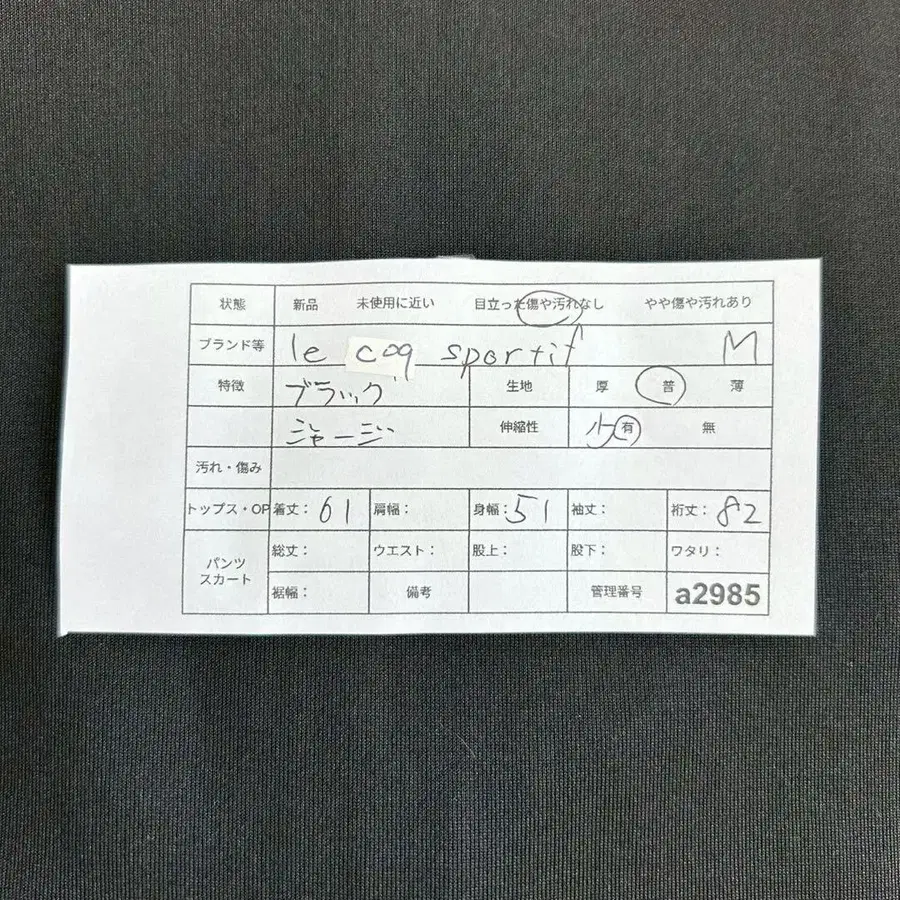 状態 新品 未使用に近い 目立った傷や汚れなし やや傷や汚れあり
ブランド等 le coq sportif M
特徴 ブラック 生地 厚 普 薄
ジャージ 伸縮性 少有 無
汚れ・傷み
トップス・OP 着丈：61 肩幅： 身幅：51 袖丈： 裄丈：82
パンツ
スカート
総丈： ウエスト： 股上： 股下： ワタリ：
裾幅： 備考 管理番号 a2985